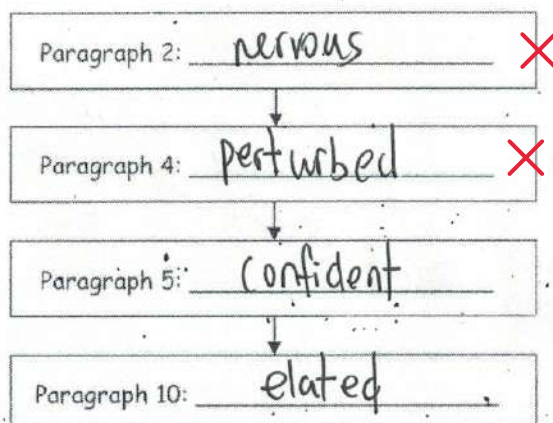 Paragraph 2: nervous
Paragraph 4: perturbed
Paragraph 5: confident
Paragraph 10: elated